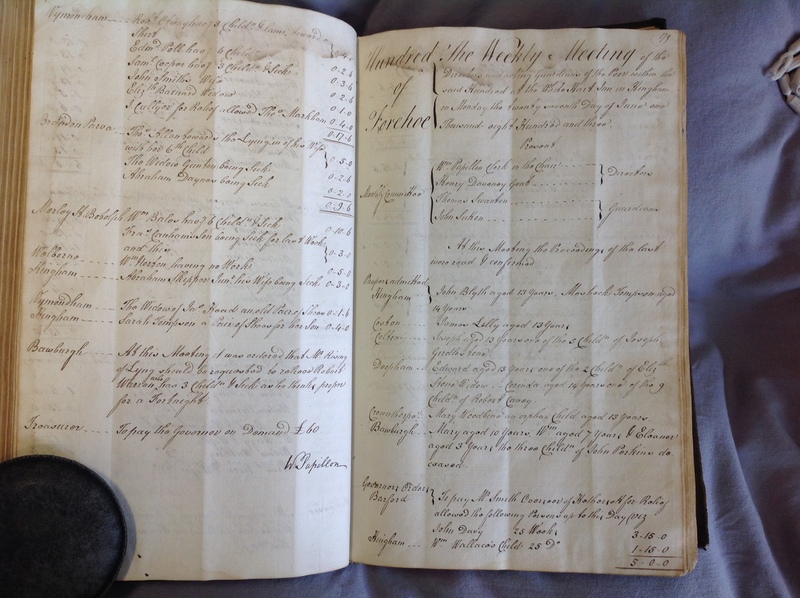 Wymondham
has 3 Child.n & Lame, towards
Shirt
Edm.d Poll has 6 Child.n
0-2-6
Sam.l Cooper has 3 Child.n & Sick
0-3-6
John Smiths Wife
0-2-6
Eliz.th Barnard Widow
0-1-0
J. Cullyer for Relief allowed Tho.s Markham
0-4-0
0-17-6
Tho.s towards the Lying in of his Wife
with her 6th Child
0-5-0
The Widow Gunton being Sick
0-2-6
Abraham Daynes being Sick
0-2-0
0-9-6
Morley St. Botolph W.m Bales has 6 Child.n & Sick
0-10-6
Fra.s Canhams Son being Sick for last Week
and this
0-3-0
W.m Horton having no Work
0-5-0
Hingham Abraham Skipper Jun.r his Wife being Sick
0-3-0
Wymondham The Widow of Ja.s Hoard an old Pair of Shoes 0-1-6
Hingham Sarah Tempson a Pair of Shoes for her Son 0-4-0
Bawburgh At this Meeting it was ordered that Mr. Rising
of Lyng should be requested to relieve Robert
who has 3 Child.n & Sick as he thinks proper
for a Fortnight
Treasurer To pay the Governor on Demand £60
W. Papillon
Hundred The Weekly Meeting of the
of
Forehoe
Directors and acting Guardians of the Poor within the
said Hundred at the White Hart Inn in Hingham
on Monday the twenty seventh Day of June one
thousand eight Hundred and three
Present
Weekly Committee
W.m Papillon Clerk in the Chair
Henry Daveney Gent
Directors
Thomas Swanton
John
Guardians
At this Meeting the Proceedings of the last
were read & confirmed
Paupers admitted
Hingham John Blyth aged 13 Years, Tempson aged
14 Years
Coston James Lilly aged 13 Years
Joseph aged 13 Years one of the 5 Child.n of Joseph
Deopham Edward aged 13 Years one of the 2 Child.n of Eliz.th
Widow aged 14 Years one of the 9
Child.n of Robert Caney
Crownthorpe Mary Woodhead an orphan Child aged 13 Years
Bawburgh Mary aged 10 Years, W.m aged 7 Years & Eleanor
aged 3 Years the three Child.n of John Perkins de
ceased
Governors Orders
Barford To pay Mr. Smith Overseer of for Relief
allowed the following Persons up to this Day (viz
John Davy 25 Weeks 3-15-0
Hingham W.m Wallace's Child 25 D.o 1-15-0
5-0-0